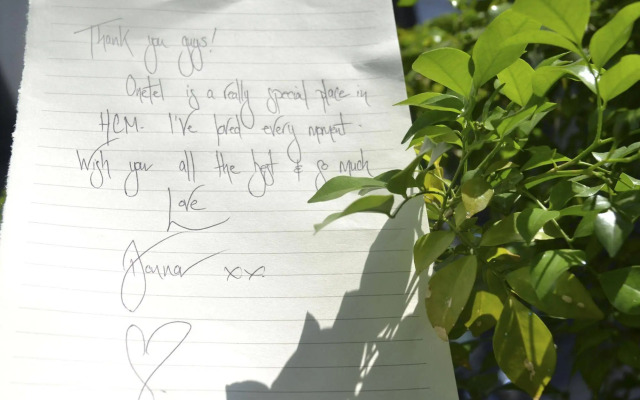 Thank you guys!
Onetel is a really special place in
HCM. I've loved every moment.
Wish you all the best & so much
Love
Donna xx.